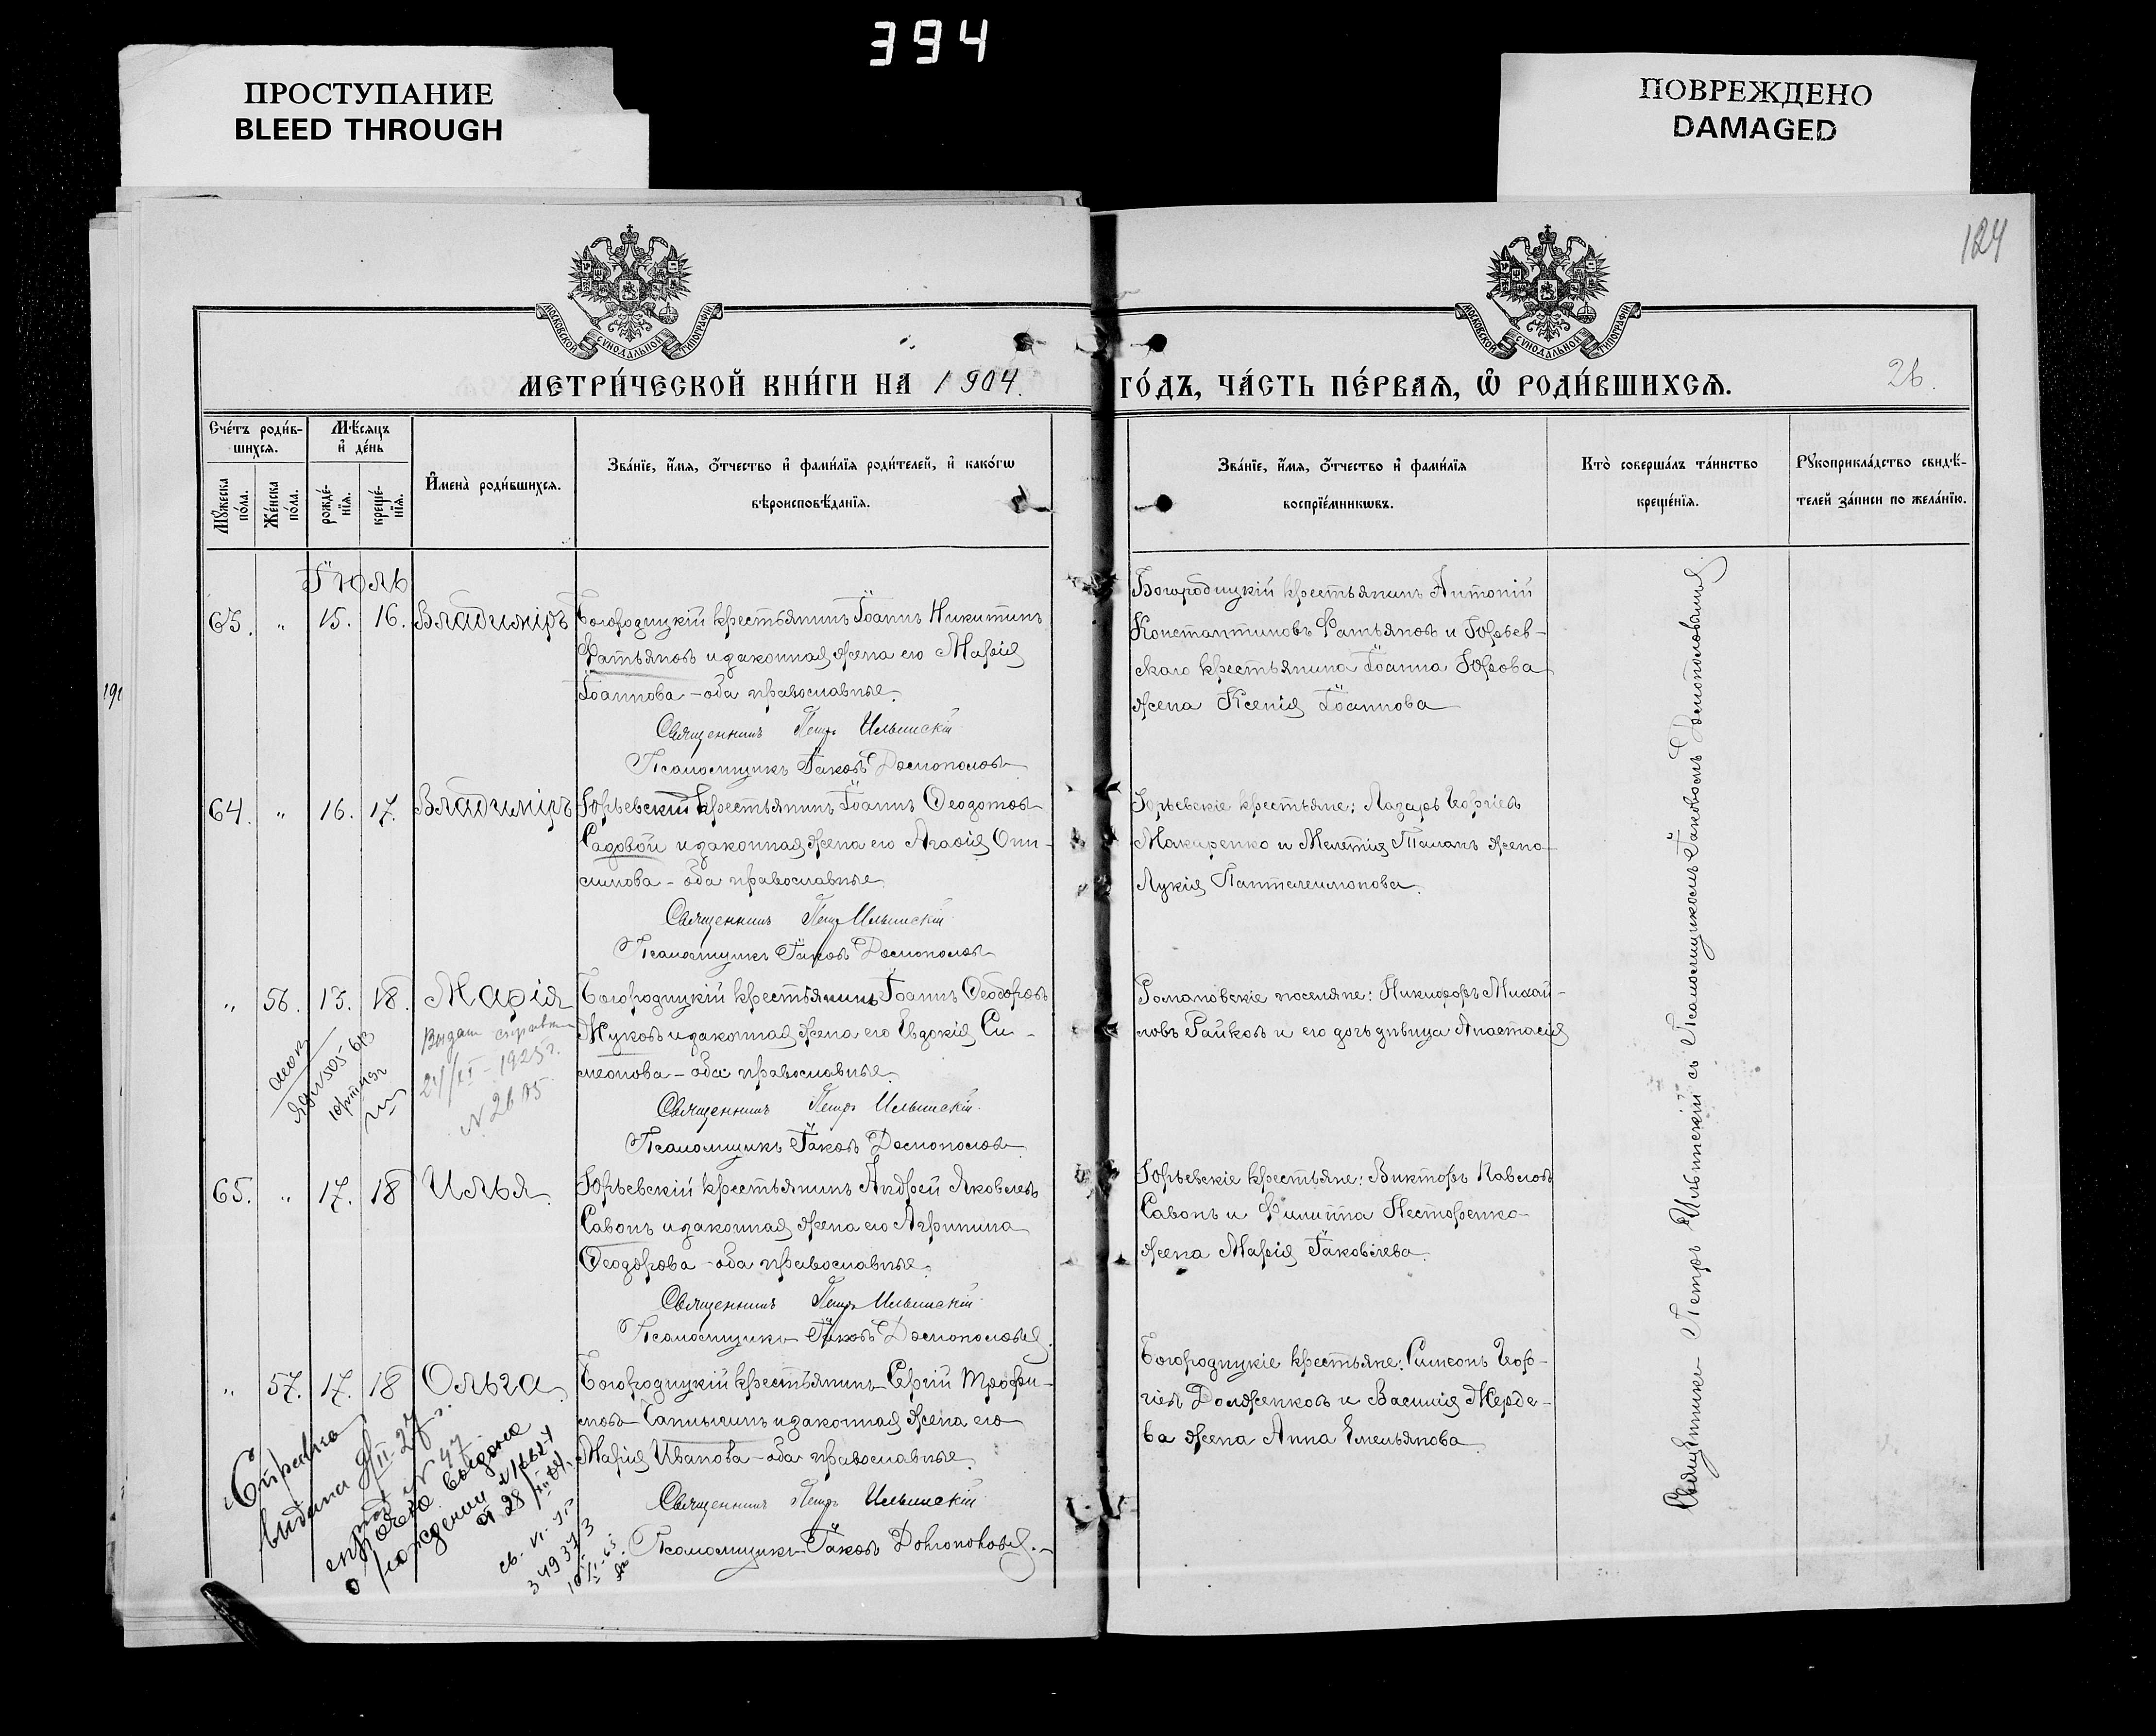 394
ПРОСТУПАНИЕ
BLEED THROUGH
ПОВРЕЖДЕНО
DAMAGED
124
МОСКОВСКОЙ СѴНОДАЛЬНОЙ ТИПОГРАФІИ
МОСКОВСКОЙ СѴНОДАЛЬНОЙ ТИПОГРАФІИ
МЕТРИ́ЧЕСКОЙ КНИ́ГИ НА 1904.
ГО́ДЪ, ЧА́СТЬ ПЕ́РВАѦ, Ѽ РОДИ́ВШИХСѦ.
26.
Сче́тъ роди́в-
шихсѧ.
Мꙋжеска по́ла.
Же́нска по́ла.
Мѣ́сѧцъ
и҆ де́нь
рожде́-
нїѧ.
креще́-
нїѧ.
И҆мена̀ роди́вшихсѧ.
Зва́нїе, и҆́мѧ, ѻ҆́тчество и҆ фами́лїѧ роди́телей, и҆ како́гѡ
вѣроисповѣ́данїѧ.
Зва́нїе, и҆́мѧ, ѻ҆́тчество и҆ фами́лїѧ
воспрїе́мникѡвъ.
Кто̀ соверша́лъ та́инство
креще́нїѧ.
Рꙋкоприкла́дство свидѣ́-
телей за́писи по жела́нїю.
Іюль
63. " 15. 16. Владиміръ
Богородицкій крестьянинъ Іоаннъ Никитинъ
Фатьяновъ и законная жена его Марія
Іоаннова – оба православные.
Священникъ Петръ Ильинскій
Псаломщикъ Іаковъ Доспополовъ
Богородицкій крестьянинъ Антоній
Константиновъ Фатьяновъ и Юрьев-
скаго крестьянина Іоанна Юрова
жена Ксенія Іоаннова
64. " 16. 17. Владиміръ
Юрьевскій крестьянинъ Іоаннъ Ѳеодотовъ
Садовой и законная жена его Агаѳія Они-
симова – оба православные
Священникъ Петръ Ильинскій
Псаломщикъ Іаковъ Доспополовъ
Юрьевскіе крестьяне: Лазарь Георгіевъ
Макиренко и Мелетія Таманъ жена
Лукія Пантелеимонова.
" 56. 13. 18. Марія
Богородицкій крестьянинъ Іоаннъ Ѳеодоровъ
Жуковъ и законная жена его Евдокія Си-
меонова – оба православные.
Священникъ Петръ Ильинскій
Псаломщикъ Іаковъ Доспополовъ
Романовскіе поселяне: Никифоръ Михай-
ловъ Райковъ и его дочь дѣвица Анастасія
Выдат справка
24/XI – 1925 г.
N 2605
65. " 17. 18 Илья
Юрьевскій крестьянинъ Андрей Яковлевъ
Савонъ и законная жена его Агрипина
Ѳеодорова – оба православные.
Священникъ Петръ Ильинскій
Псаломщикъ Іаковъ Доспополовъ
Юрьевскіе крестьяне: Викторъ Павловъ
Савонъ и Филиппа Нестеренко
жена Марія Іаковлева.
" 57. 17. 18 Ольга
Богородицкій крестьянинъ Сергій Трофи-
мовъ и законная жена его
Марія Иванова – оба православные.
Священникъ Петръ Ильинскій
Псаломщикъ Іаковъ
Богородицкіе крестьяне: Симеонъ Геор-
гіевъ Долженковъ и Василія Жерде-
ва жена Анна Емельянова
Справка
видана
N 47
справка выдана
о рождении
от 28
Священникъ Петръ Ильинскій съ Псаломщикомъ Іаковомъ Доспополовымъ